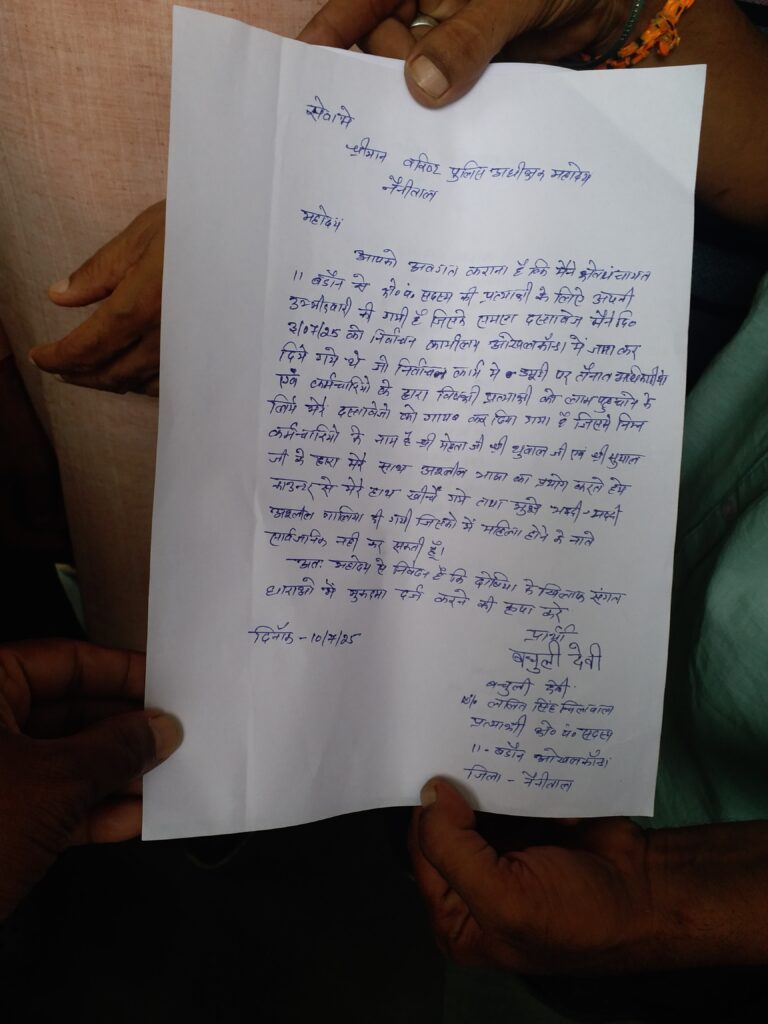 सेवामे
श्रीमान वरिष्ठ पुलिस अधीक्षक महोदय
नैनीताल
महोदय
आपको अवगत कराना है कि मैने क्षेत्र पंचायत
11 बडौन से क्षे० पं० सदस्य की प्रत्याशी के लिऐ अपनी
उम्मीदवारी की गयी है जिसके समस्त दस्तावेज मैने दि०
3/07/25 को निर्वाचन कार्यालय ओखलकाँडा में जमा कर
दिये गये थे जो निर्वाचन कार्य मे ड्यूटी पर तैनात अधिकारीयो
एवं कर्मचारियो के द्वारा विपक्षी प्रत्याशी को लाभ पहुचाने के
लिये मेरे दस्तावेजो को गायब कर दिया गया है जिसमे निम्न
कर्मचारियो के नाम है श्री मेहता जी श्री थुवाल जी एवं श्री सुमान
जी के द्वारा मेरे साथ अश्लील भाषा का प्रयोग करते हुये
काउन्टर से मेरे हाथ खीचें गये तथा मुझे भद्दी-भद्दी
अश्लील गालिया दी गयी जिसको में महिला होने के नाते
सार्वजनिक नही कर सकती हूँ।
अतः महोदय से निवेदन है कि दोषियो के खिलाफ संगत
धाराओ में मुकदमा दर्ज करने की कृपा करे
प्रार्थी
दिनाँक - 10/7/25
बचुली देवी
बचुली देवी
w/o ललित सिंह चिलवाल
प्रत्याशी क्षे० पं० सदस्य
11 - बडौन ओखलकाँडा
जिला - नैनीताल